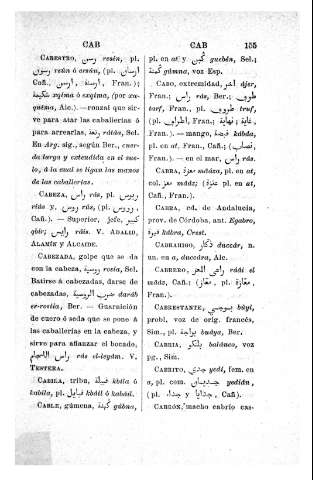 CAB
CAB 155
CABESTRO, رسن resén, pl.
رسون resún ó arsán, (pl. أرسان,
Cañ., أرسنة, أرسن, Fran.);
شكيمة xqima ó exqima, (por xu-
quéma, Alc.).—ronzal que sir-
ve para atar las caballerías ó
para arrearlas,
En Arg. sig., según Ber., cuer-
da larga y extendida en el sue-
lo, á la cual se ligan los menos
de las caballerías.
CABEZA, راس rás, pl. ريوس
riús y روس rús, (pl.
Cañ.).—Superior, jefe, كبير
kebir; رايس ráis. V. ADALID,
ALAMÍN Y ALCAIDE.
CABEZADA, golpe que se da
con la cabeza, روسية rosía, Sel.
Batirse á cabezadas, darse de
cabezadas, ضرب الروسية daráb
er-rostia, Ber. — Guarnición
de cuero ó seda que se pone á
las caballerías en la cabeza, y
sirve para afianzar el bocado,
راس اللجام rás el-leyám. V.
TESTERA.
CABILA, tribu, قبيلة kbila ó
kabila, pl. قبايل kbáil ó kabáil.
CABLE, gúmena, گمنة gúbna,
pl. en at y گبين guebén, Sel.;
گمنة gúmna, voz Esp.
CABO, extremidad, اخر ájer,
Fran.; راس rás, Ber.; طرف
tarf, Fran., pl. طروف truf,
(pl. اطراف, Fran.; نهاية, غاية,
Fran.). — mango, قبضة kábda,
pl. en at, Fran., Cañ.; (نصاب,
Fran.). — en el mar, راس rás.
CABRA, معزة máâza, pl. en at,
col. معز máâz; (عنزة pl. en at,
Cañ., Fran.).
CABRA, ed. de Andalucía,
prov. de Córdoba, ant. Egabro,
قبرة kábra, Crest.
CABRAHIGO, دكار duccár, n.
un. en a, duccdra, Alc.
CABRERO, راعي المعز râdi el
máâz, Cañ.: (معاز pl.,
Fran.).
CABRESTANTE, بوجي búyi,
probl. voz de orig. francés,
Sim., pl. بواجة buáya, Ber.
CABRIA, بلنكو balánco, voz
pg., Sim.
CABRITO, جدي yedi, fem. en
a, pl. com. جديان yedián,
(pl. جدايا y جداء, Cañ.).
CABRÓN, macho cabrío cas-